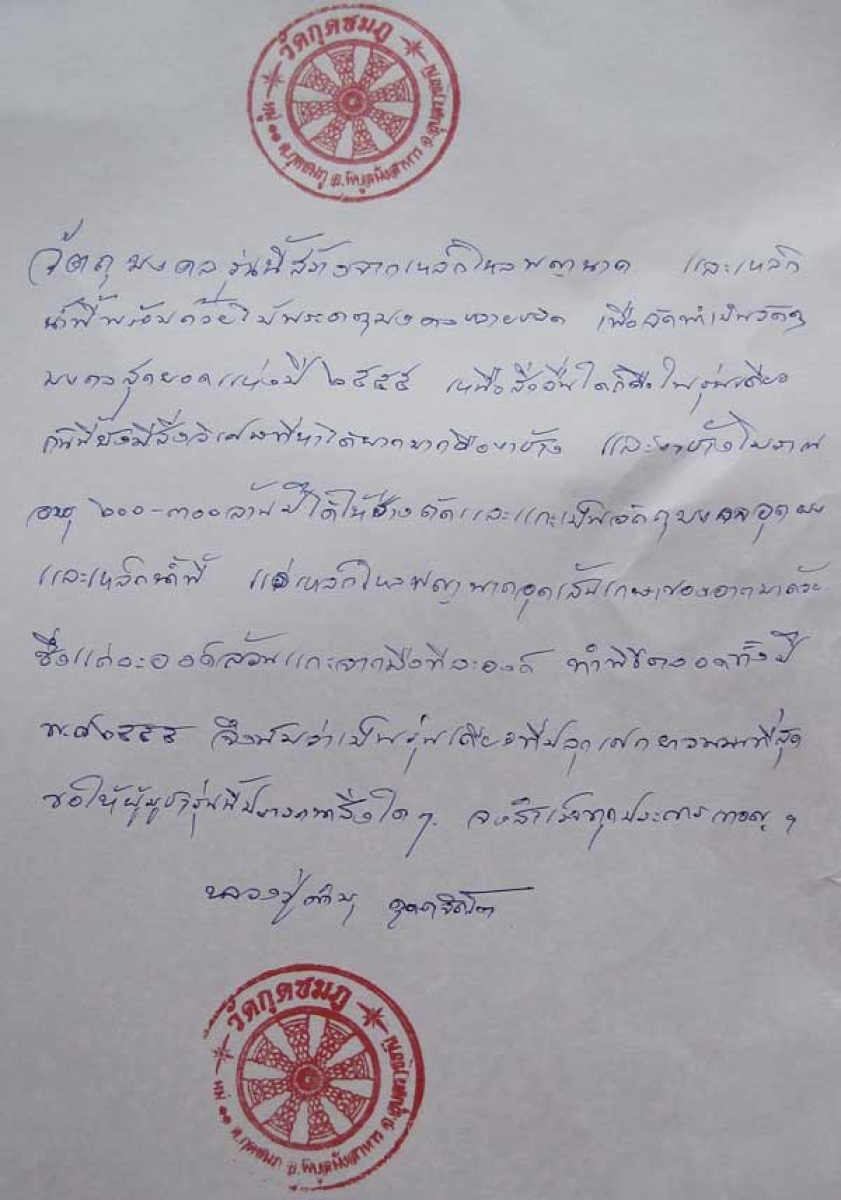 วัดกุดชมภู
หมู่ ๑๑ ต.กุดชมภู อ.พิบูลมังสาหาร จ.อุบลราชธานี
วัตถุมงคลรุ่นนี้สร้างจากเหล็กไหลพญานาค และเหล็ก
น้ำพี้พร้อมด้วย เพื่อจัดทำเป็นวัตถุ
มงคลสุดยอดแห่งปี ๒๕๕๕ เหนือสิ่งอื่นใดก็คือในรุ่นเดียว
กันนี้ยังมีสิ่งวิเศษที่หาได้ยากมากคืองาช้าง และงาช้างโบราณ
อายุ ๒๐๐-๓๐๐ล้านปีได้ให้ช่างตัดและแกะเป็นวัตถุมงคลอุดผง
และเหล็กน้ำพี้ แร่เหล็กไหลพญานาคอุดเส้นเกษาของอาตมาด้วย
ซึ่งแต่ละองค์ล้วนแกะจากมือทีละองค์ ทำพิธีตลอดทั้งปี
พ.ศ๒๕๕๕ จึงนับว่าเป็นรุ่นเดียวที่ปลุกเสกยาวนานที่สุด
ขอให้ผู้บูชารุ่นนี้ปรารถนาสิ่งใดๆ จงสำเร็จทุกประการเทอญ ฯ
หลวงปู่คำบุ คุตฺตจิตฺโต
วัดกุดชมภู
หมู่ ๑๑ ต.กุดชมภู อ.พิบูลมังสาหาร จ.อุบลราชธานี